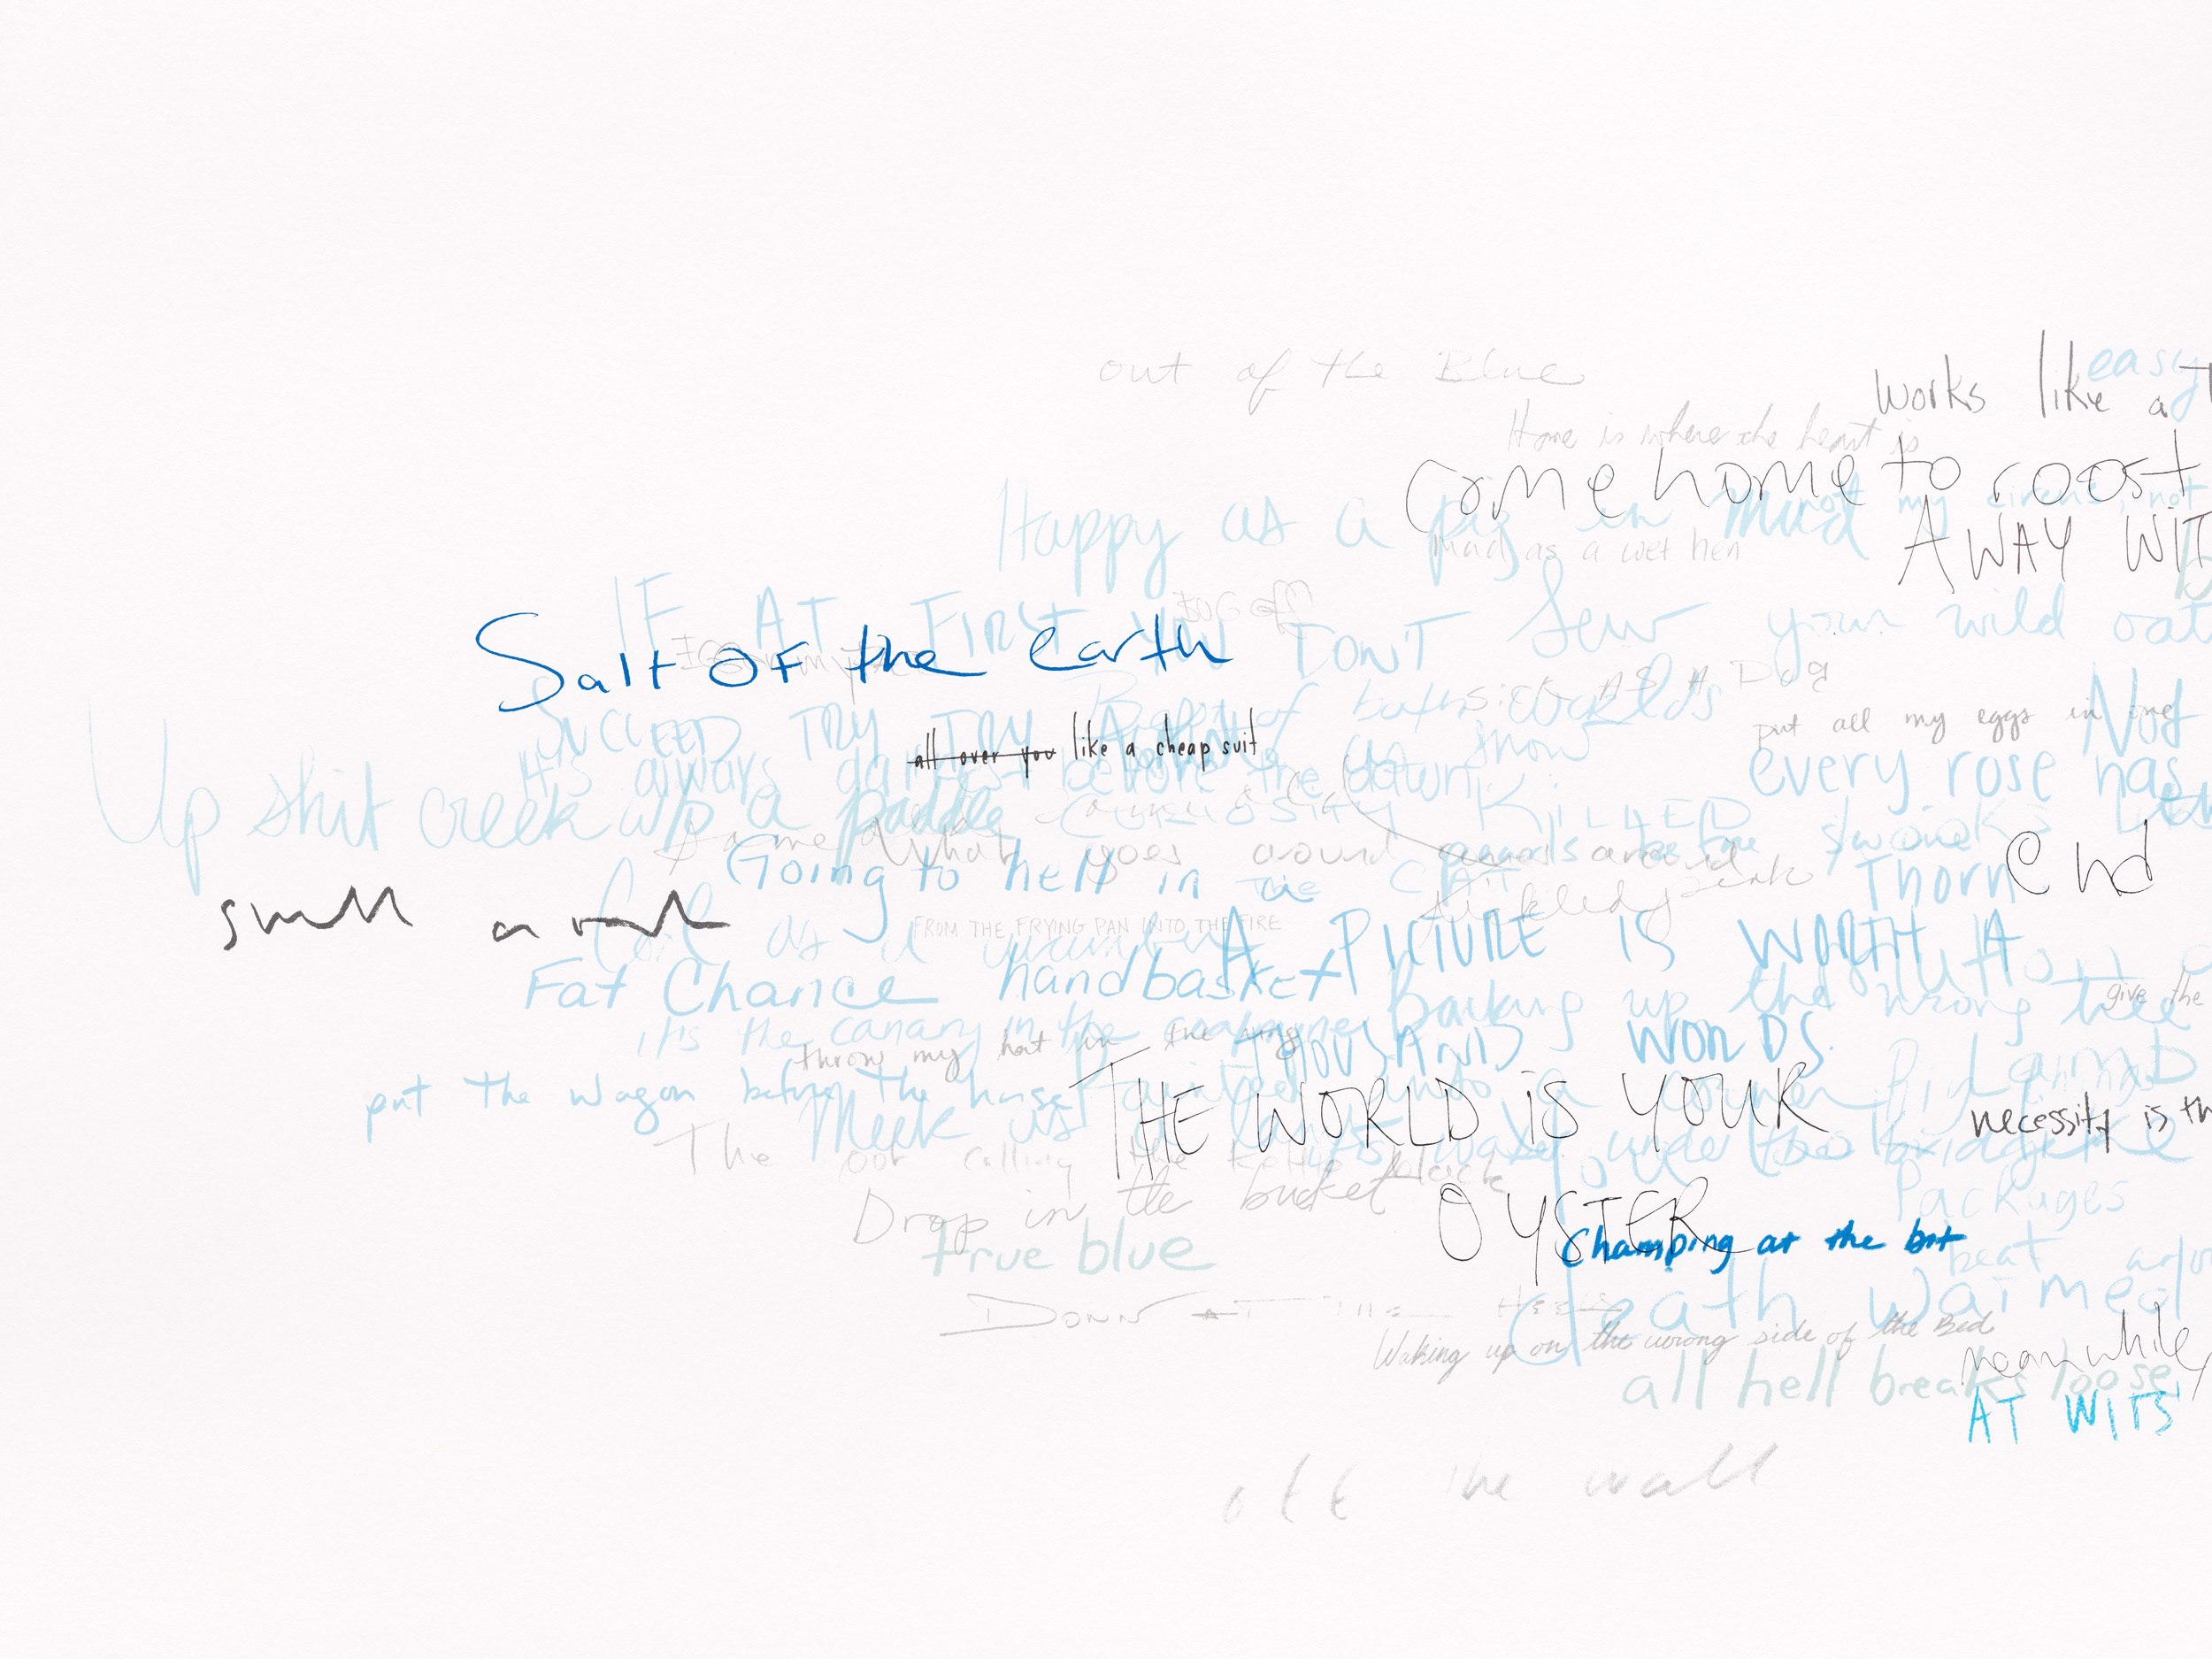 out of the Blue
works like a
easy
Home is where the heart is
come home to roost
Happy as a pig in mud
not my circus, not
mad as a wet hen
AWAY WIT
IF AT FIRST YOU DON'T
Sew your wild oat
Salt of the earth
SUCCEED TRY TRY AGAIN
Best of both worlds
sick AS A Dog
put all my eggs in one
Not
all over you like a cheap suit
It's always darkest before the dawn
every rose has
Up shit creek w/o a paddle
CURIOSITY KILLED
THE CAT
What goes around comes around
Going to hell in a
handbasket
tickled pink
Thorn
end
smell a rat
FROM THE FRYING PAN INTO THE FIRE
Cool as a cucumber
A PICTURE IS WORTH A
THOUSAND WORDS.
Fat Chance
Barking up the wrong tree
give the
it's the canary in the coalmine
throw my hat in the ring
put the wagon before the horse
THE WORLD IS YOUR
OYSTER
Lamb
necessity is th
The pot calling the kettle black
Packages
Drop in the bucket
true blue
Champing at the bit
beat
death warmed
DOWN AT THE Heels
Waking up on the wrong side of the Bed
meanwhile,
all hell breaks loose
AT WITS'
off the wall